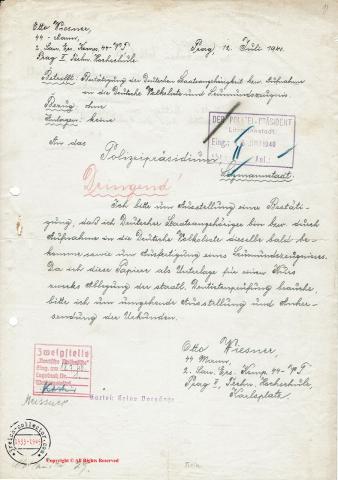 Otto Wiesner,
44 - Mann,
2. San. Ers. Komp. 44-VT
Prag I Techn. Hochschule.
Prag, 12. Juli 1941.
Betrifft: Bestätigung der Deutschen Staatsangehörigkeit bzw. Aufnahme
in die Deutsche Volksliste und Leumundszeugnis.
Bezug: ohne
Anlagen: keine
An das
Polizeipräsidium,
Litzmannstadt.
DER POLIZEI-PRÄSIDENT
Litzmannstadt
Eing.:
Anl.:
Dringend!
Ich bitte um Ausstellung einer Bestäti-
gung, daß ich Deutscher Staatsangehöriger bin bzw. durch
Aufnahme in die Deutsche Volksliste dieselbe bald be-
komme sowie um Ausfertigung eines Leumundszeugnisses.
Da ich diese Papiere als Unterlage für einen Kurs
zwecks Ablegung der staatl. Dentistenprüfung brauche,
bitte ich um umgehende Ausstellung und Anher-
sendung der Urkunden.
Otto Wiesner,
44 Mann,
2. San. Ers. Komp. 44-VT
Prag I, Techn. Hochschule,
Karlsplatz.
Zweigstelle
Deutsche Volksliste
Eing. am
Tagebuch Nr.
Kartei: Keine Vorgänge
reich-collector.com
1933-1945
Copyright © All Rights Reserved